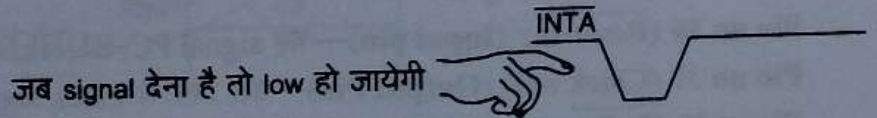 INTA
जब signal देना है तो low हो जायेगी